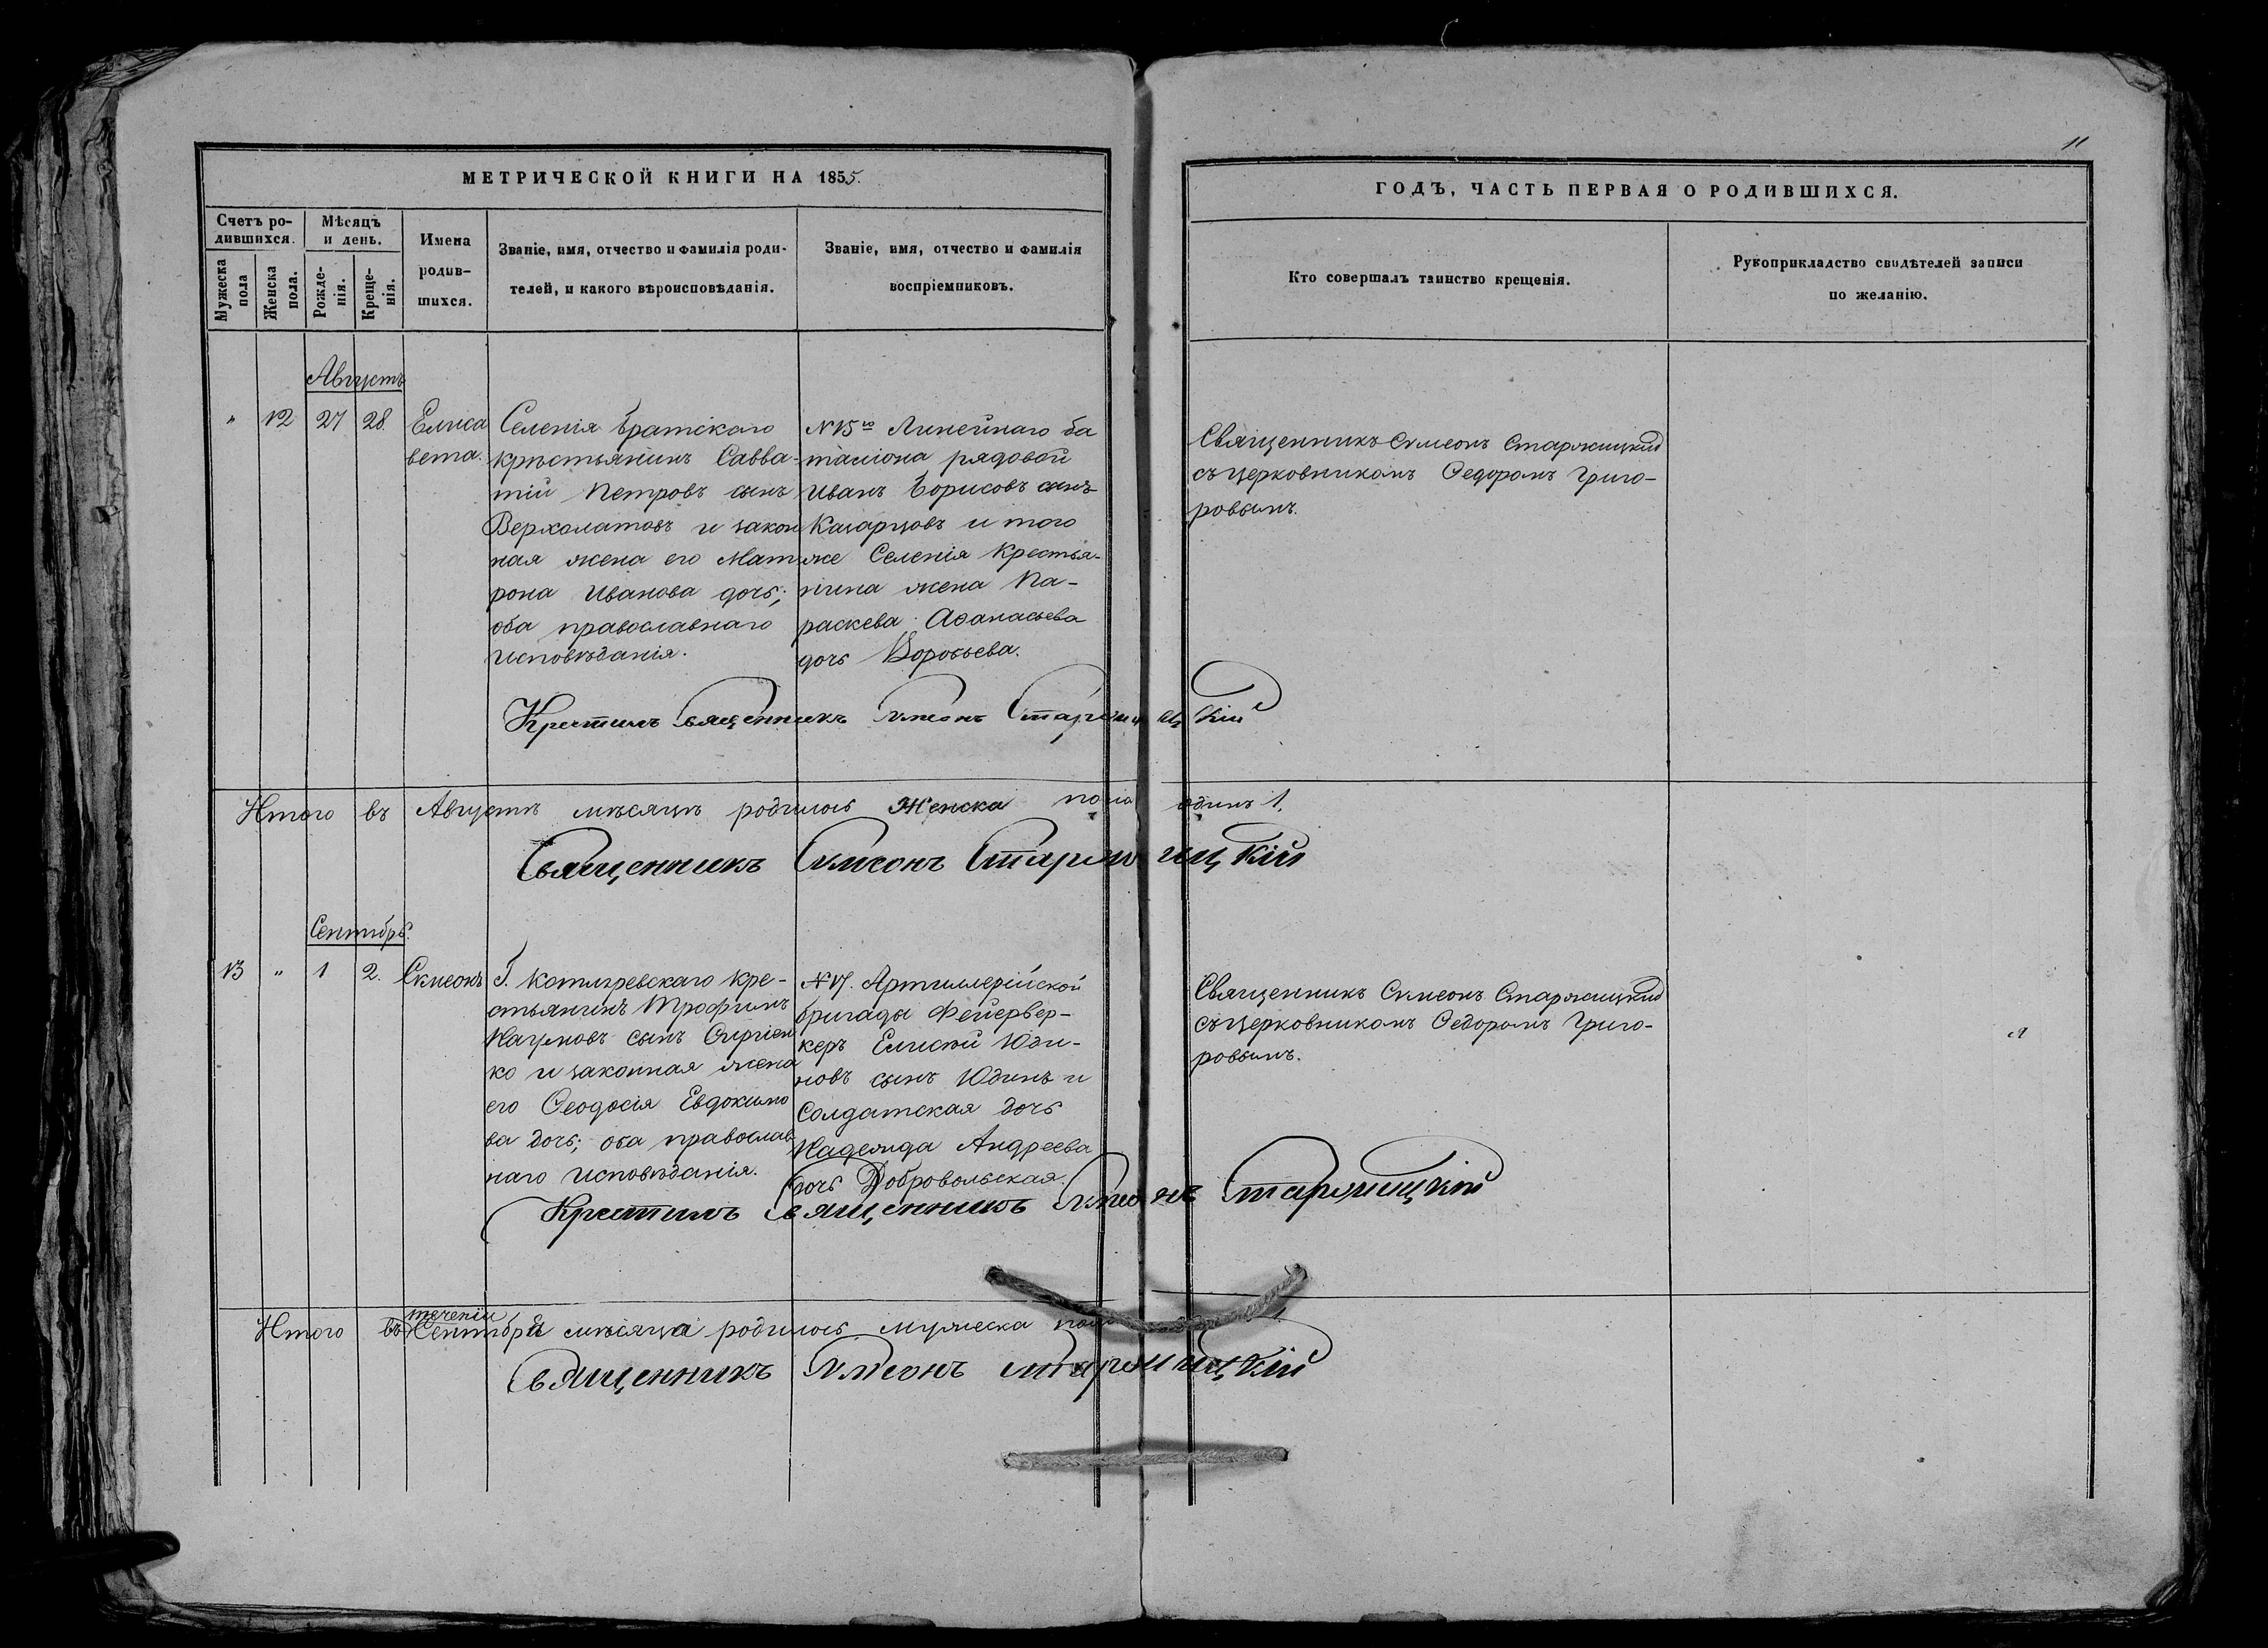 11
МЕТРИЧЕСКОЙ КНИГИ НА 1855.
ГОДЪ, ЧАСТЬ ПЕРВАЯ О РОДИВШИХСЯ.
Счетъ ро-
дившихся.
Мужеска
пола
Женска
пола.
Мѣсяцъ
и день.
Рожде-
нія.
Креще-
нія.
Имена
родив-
шихся.
Званіе, имя, отчество и фамилія роди-
телей, и какого вѣроисповѣданія.
Званіе, имя, отчество и фамилія
воспріемниковъ.
Кто совершалъ таинство крещенія.
Рукоприкладство свидѣтелей записи
по желанію.
Августъ
" 12 27 28.
Елиса
вета.
Селенія братскаго
крѣстьянинъ Савва-
тій Петровъ сынъ
Верхолатовъ и закон
ная жена его Мат
рона Иванова дочь;
оба православнаго
исповѣданія.
N 15го Линейнаго ба
таліона рядовой
Иванъ Борисовъ сынъ
и того
же Селенія Крестья-
нина жена Па-
раскева Аѳанасьева
дочь Воробьева.
Священникъ Симеонъ Старжицкій
съ церковникомъ Ѳедоромъ Григо-
ровымъ.
Крестилъ священникъ Симеонъ Старжицкій
Итого въ Августѣ мѣсяцѣ родилось Женска пола одинъ 1.
Священникъ Симеонъ Старжицкій
Сентябрь.
13 " 1 2.
Симеонъ
Г. кре-
стьянинъ Трофимъ
Наумовъ сынъ
ко и законная жена
его Ѳеодосія Евдокимо
ва дочь; оба православ
наго исповѣданія.
N 17. Артиллерійской
бригады Фейервер-
керъ Елисѣй Юди-
новъ сынъ Юдинъ и
Солдатская дочь
Надежда Андреева
дочь Добровольская.
Священникъ Симеонъ Старжицкій
съ церковникомъ Ѳедоромъ Григо-
ровымъ.
Крестилъ Священникъ Симеонъ Старжицкій
Итого въ теченіи Сентября мѣсяца родилось мужеска пола 1
Священникъ Симеонъ Старжицкій